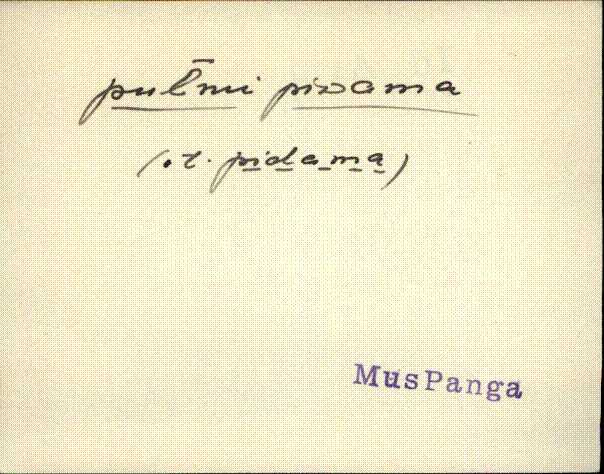 pul̄mi pivama
(.t. pidama)
MusPanga